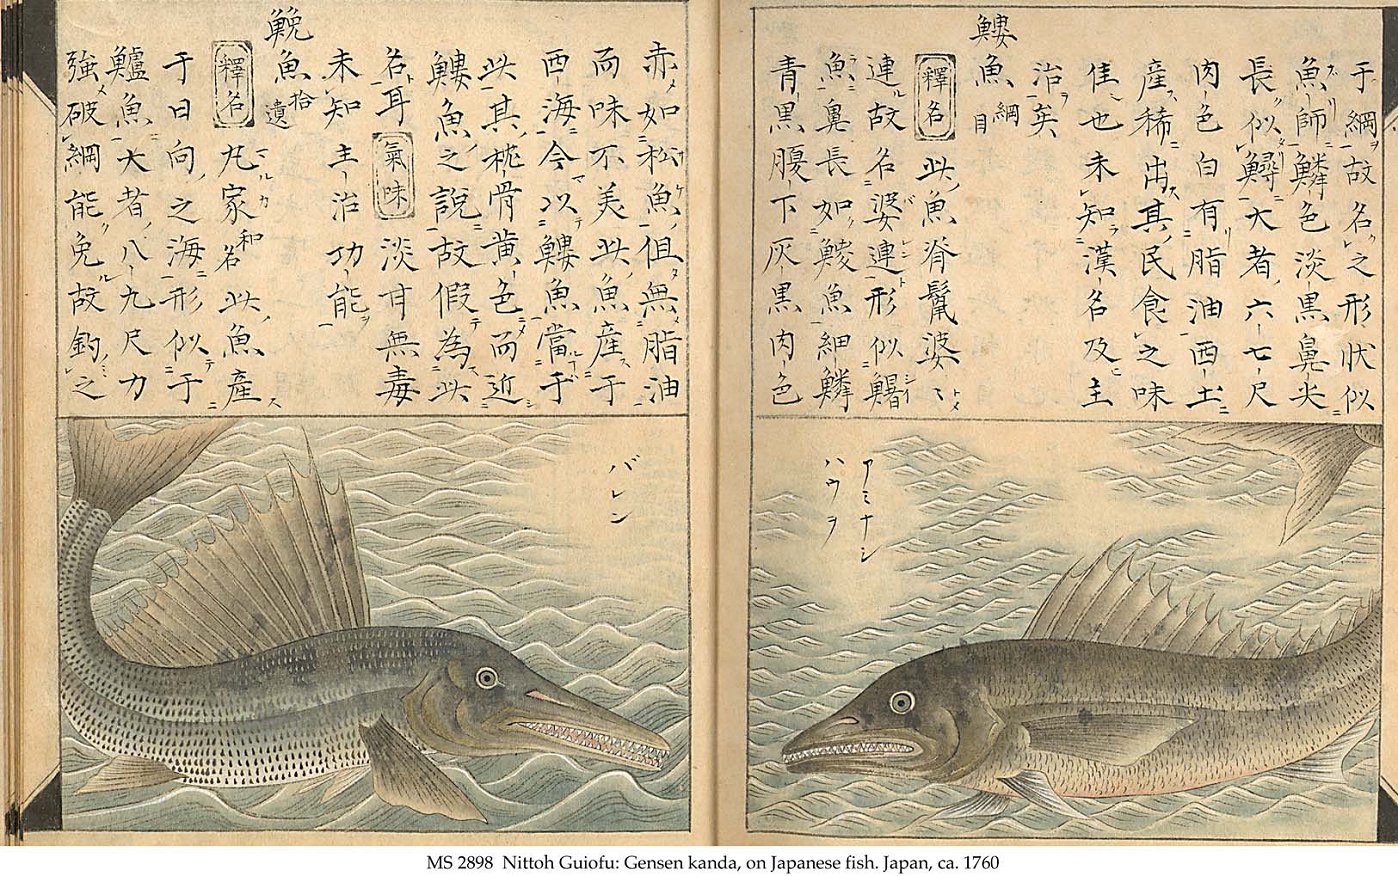 于綱故名之形状似
魚師鱗色淡黒鼻尖
長似鱘大者六七尺
肉色白有脂油西土
産稀出其民食之味
佳也未知漢名及主
治矣
魚 綱目
釋名 此魚脊鬣婆〻
連故名婆連形似
魚鼻長如鯪魚細鱗
青黒腹下灰黒肉色
アミナシ
ハウヲ
赤如松魚但無脂油
而味不美此魚産于
西海今以魚當于
此其枕骨黄色而近
魚之説故假為此
名耳 氣味 淡甘無毒
未知主治功能
鮸魚 拾遺
釋名 凢家和名此魚産
于日向之海形似于
鱸魚大者八九尺力
強破綱能免故釣之
バレン
MS 2898 Nittoh Guiofu: Gensen kanda, on Japanese fish. Japan, ca. 1760